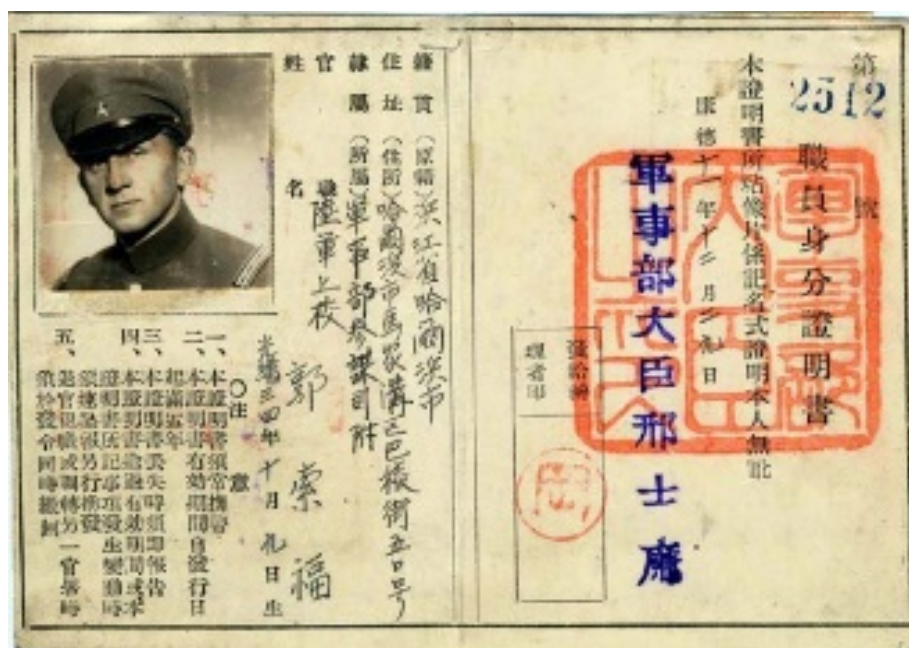 第2512號
職員身分證明書
本證明書所粘像片係記名式證明本人無訛
康德十一年十二月二九日
軍事部大臣邢士廉
發給辦理者印
籍貫（原籍）濱江省哈爾濱市
住址（住所）哈爾濱市馬家溝三巴樣街五〇号
隸屬（所屬）軍事部參謀司附
官職 陸軍上校
姓名 郭索福
光緒三四年十月九日生
〇注意
一、本證明書須常攜帶
二、本證明書有効期間自發行日起滿五年
三、本證明書丟失時須即報告
四、本證明書逾過有効期間或本證明書所記事項發生變動時須速呈報另行換發
五、退官退職或調轉另一官署時須於發令同時繳回